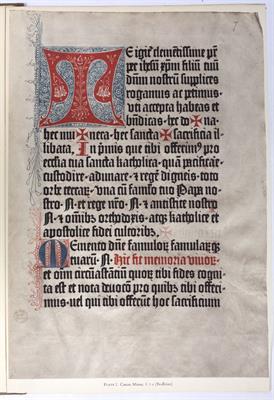 TE igit̄ clementissime pr̄
per ihesū xp̄m filiū tuū
dn̄m nostrū supplices
rogamus ac petimus
vti accepta habeas et
bn̄dicas. hec do✠na
hec mu✠nera. hec sancta✠sacrificia il
libata, In p̄mis que tibi offerimꝰ pro
ecclia tua sancta katholica. quā pacificare
custodire. adunare. ⁊ regē digneris. toto
orbe terraꝝ. vna cū famlo tuo Papa no
stro. N. et rege nr̄o. N. ⁊ antistite nostro
N. ⁊ om̄ibꝫ orthodoxis. atqꝫ katholice et
apostolice fidei cultoribꝫ.
Memento dn̄e famuloꝝ famularūqꝫ
tuarū. N. Hic fit memoria viuoꝝ
et om̄i circūastāciū quoꝝ tibi fides cogni
ta est et nota deuocō pro quibꝫ tibi offeri
mus. vel qui tibi offerūt hoc sacrificium
PLATE I. Canon Missae, f. 1 a (Bodleian)